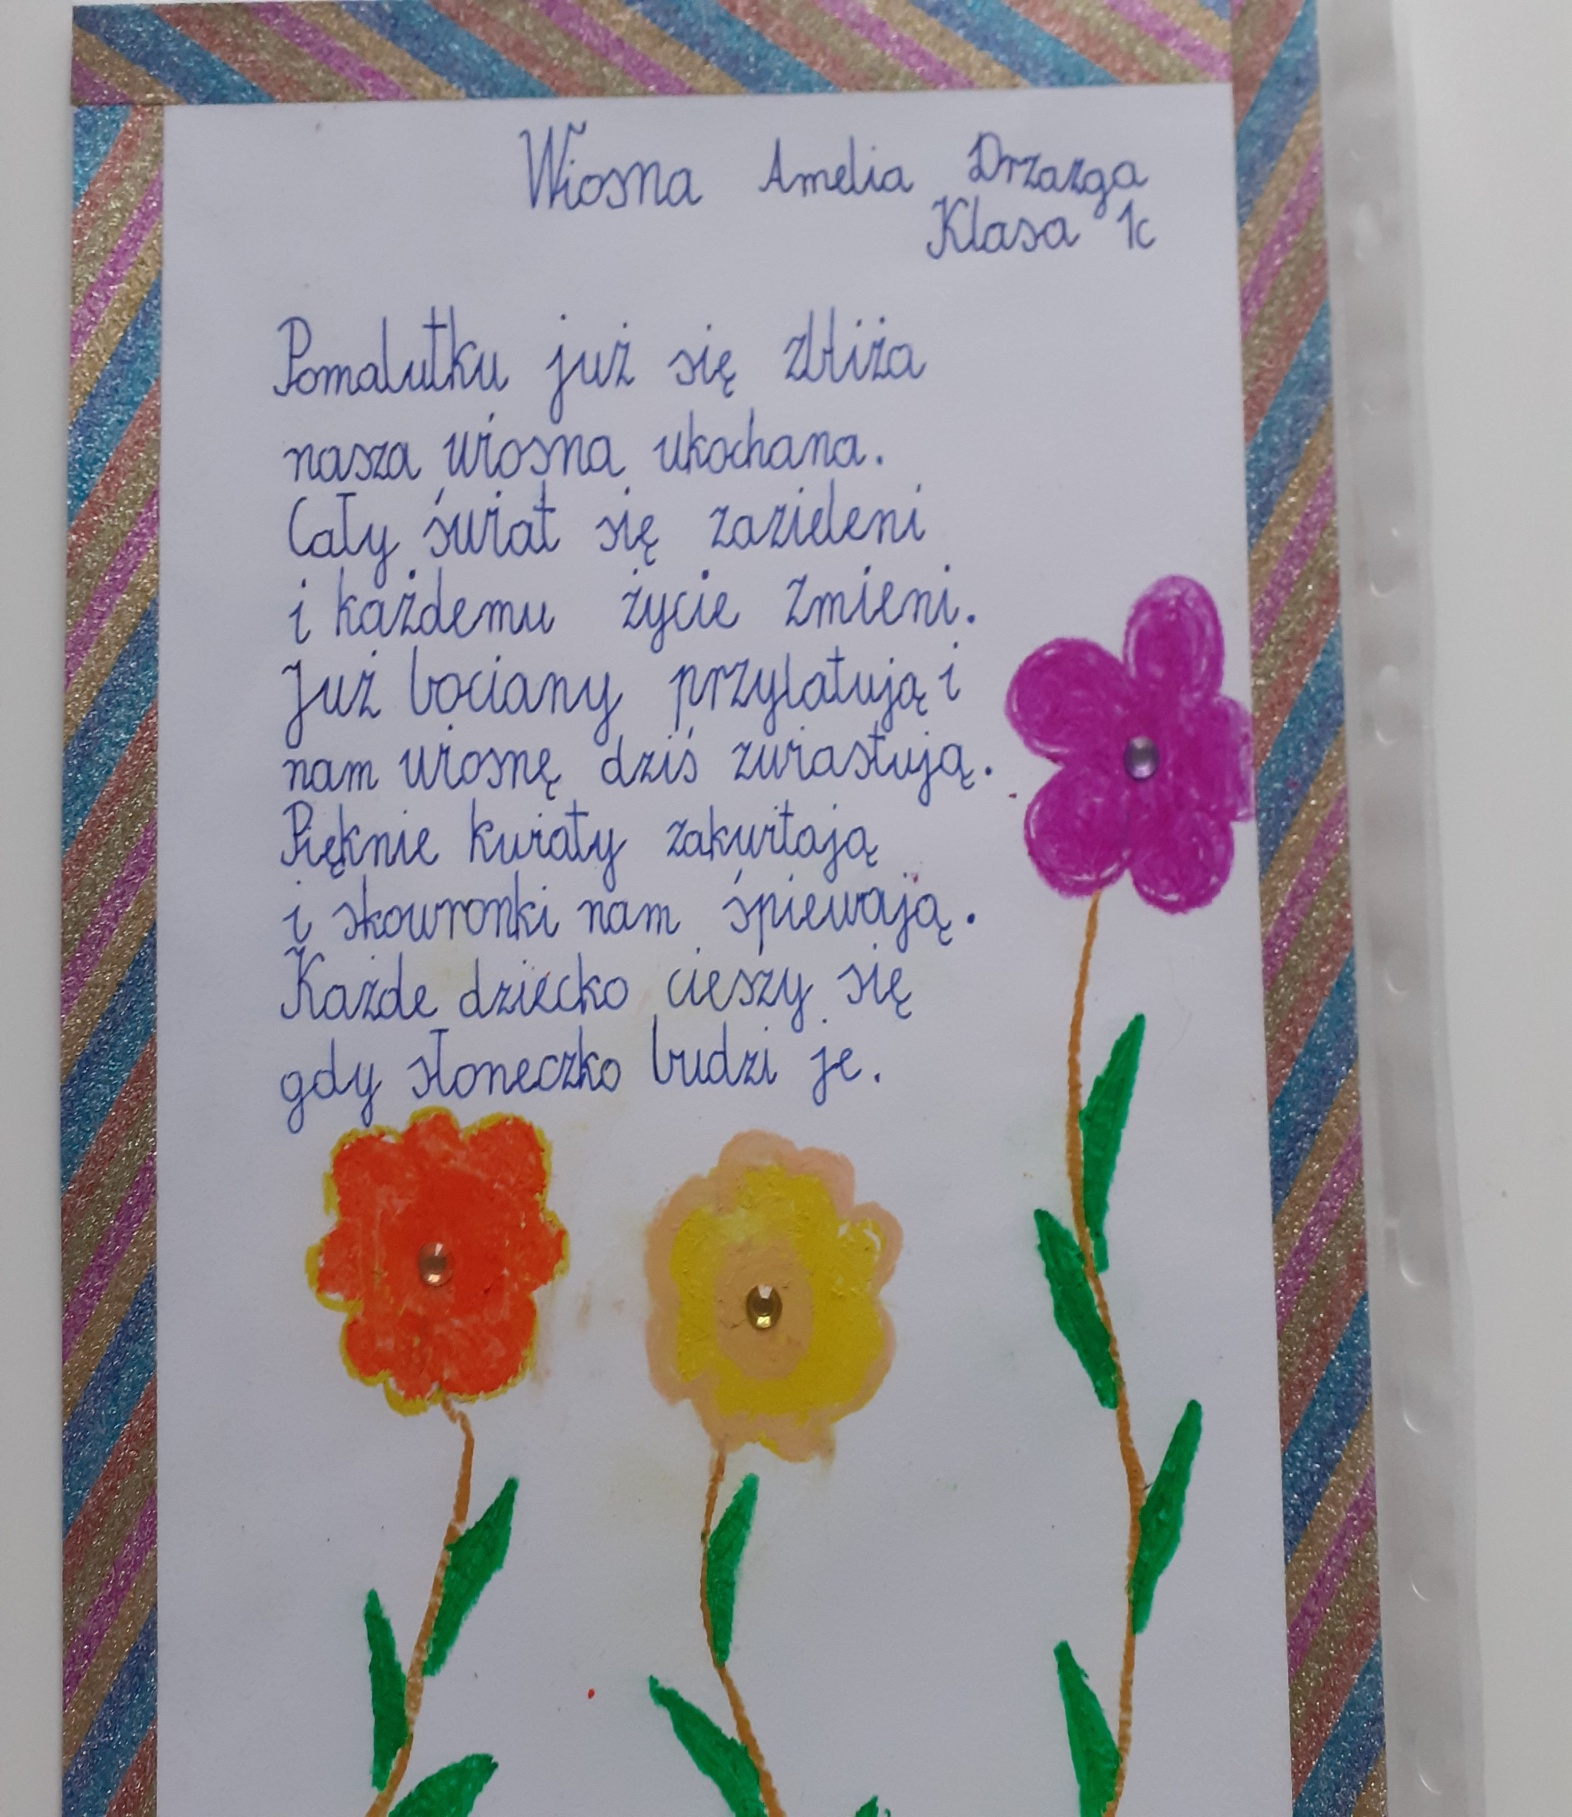 Wiosna Amelia Drzazga
Klasa 1c
Pomalutku już się zbliża
nasza wiosna ukochana.
Cały świat się zazieleni
i każdemu życie zmieni.
Już bociany przylatują i
nam wiosnę dziś zwiastują.
Pięknie kwiaty zakwitają
i skowronki nam śpiewają.
Każde dziecko cieszy się
gdy słoneczko budzi je.